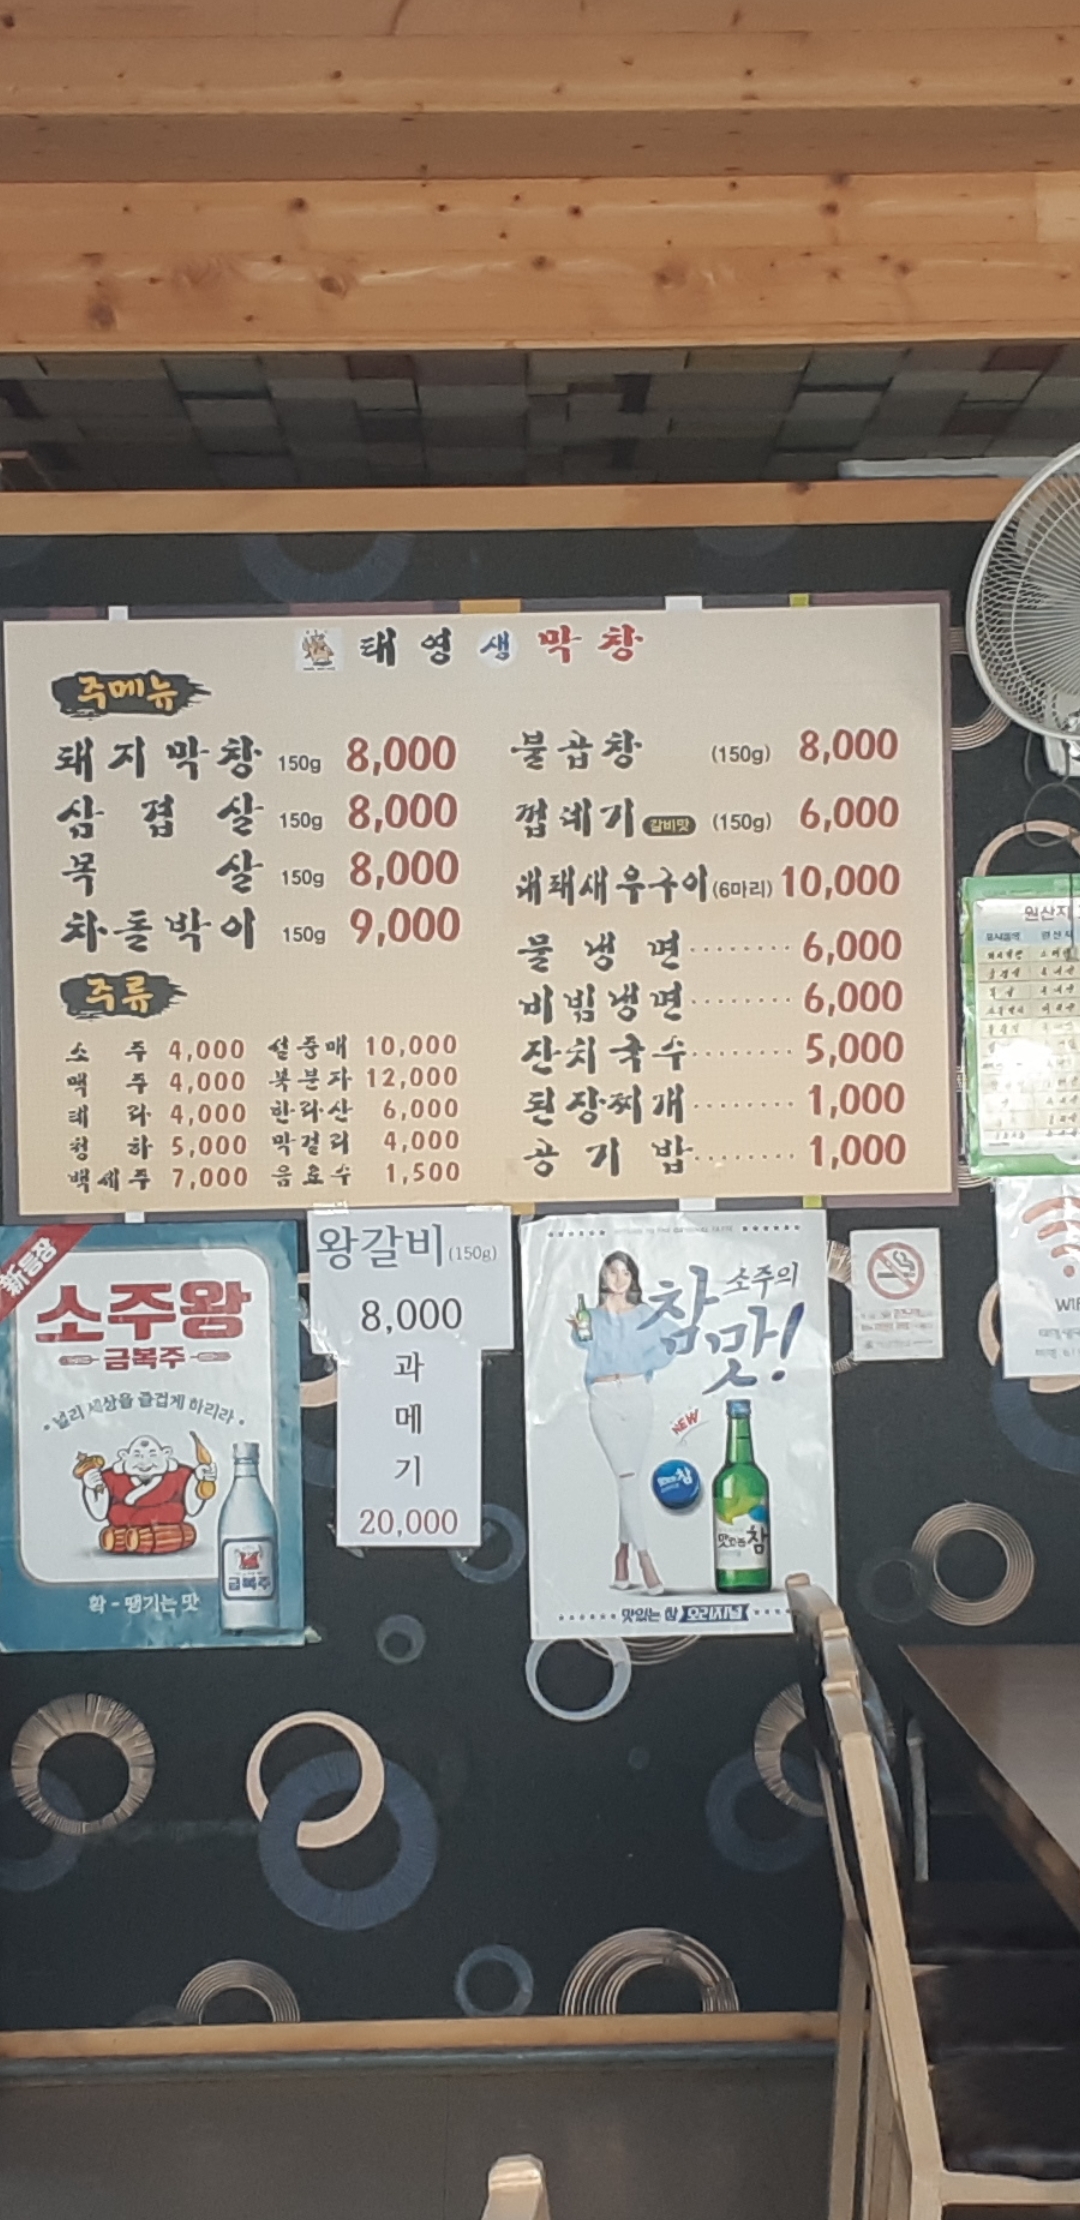 태영생막창
주메뉴
돼지막창 150g 8,000
삼겹살 150g 8,000
목살 150g 8,000
차돌박이 150g 9,000
주류
소주 4,000 설중매 10,000
맥주 4,000 복분자 12,000
테라 4,000 한라산 6,000
청하 5,000 막걸리 4,000
백세주 7,000 음료수 1,500
불곱창 (150g) 8,000
껍데기 갈비맛 (150g) 6,000
왕새우구이 (6마리) 10,000
물냉면 6,000
비빔냉면 6,000
잔치국수 5,000
된장찌개 1,000
공기밥 1,000
원산지
新등장
소주왕
금복주
널리 세상을 즐겁게 하리라
확-땡기는 맛
금복주
왕갈비(150g)
8,000
과
메
기
20,000
소주의
참맛!
NEW
맛있는 참
맛있는 참 오리지널
WIF